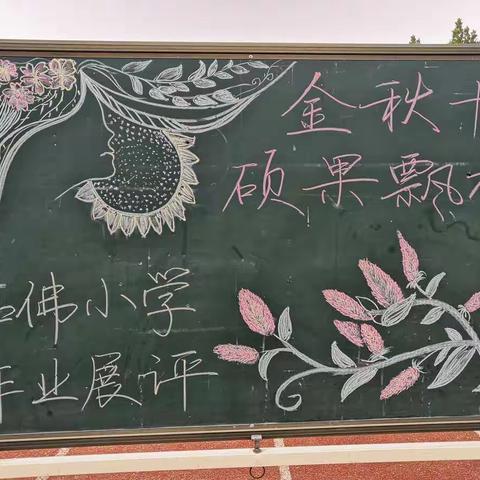 金秋十
硕果飘
佛小学
作业展评